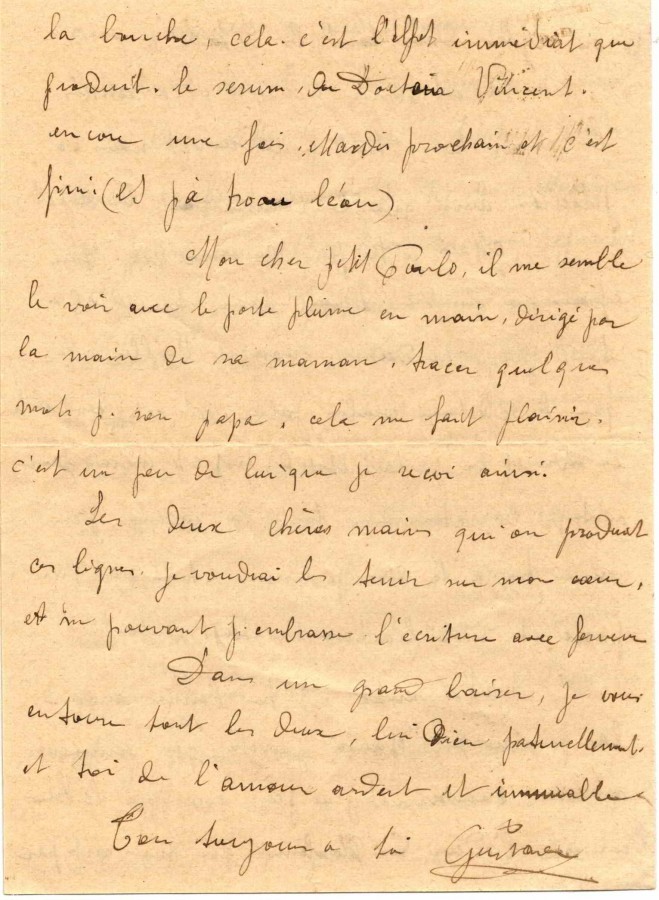 la bouche, cela c'est l'effet immédiat que
produit. le serum, du Docteur Vincent.
encore une fois, Mardi prochain et c'est
fini (es pà troau léau)
Mon cher petit Paulo, il me semble
le voir avec le porte plume en main, dirigé par
la main de sa maman, tracer quelques
mots p. son papa, cela me fait plaisir.
c'est un peu de lui que je reçoi ainsi.
Les deux chères mains qui on produit
ces lignes. je voudrai les tenir sur mon cœur,
et ne pouvant j'embrasse l'écriture avec ferveur
Dans un grand baiser, je vous
entoure tout les deux, lui bien paturellement.
et toi de l'amour ardent et immuable
Ton toujours a toi Gustave